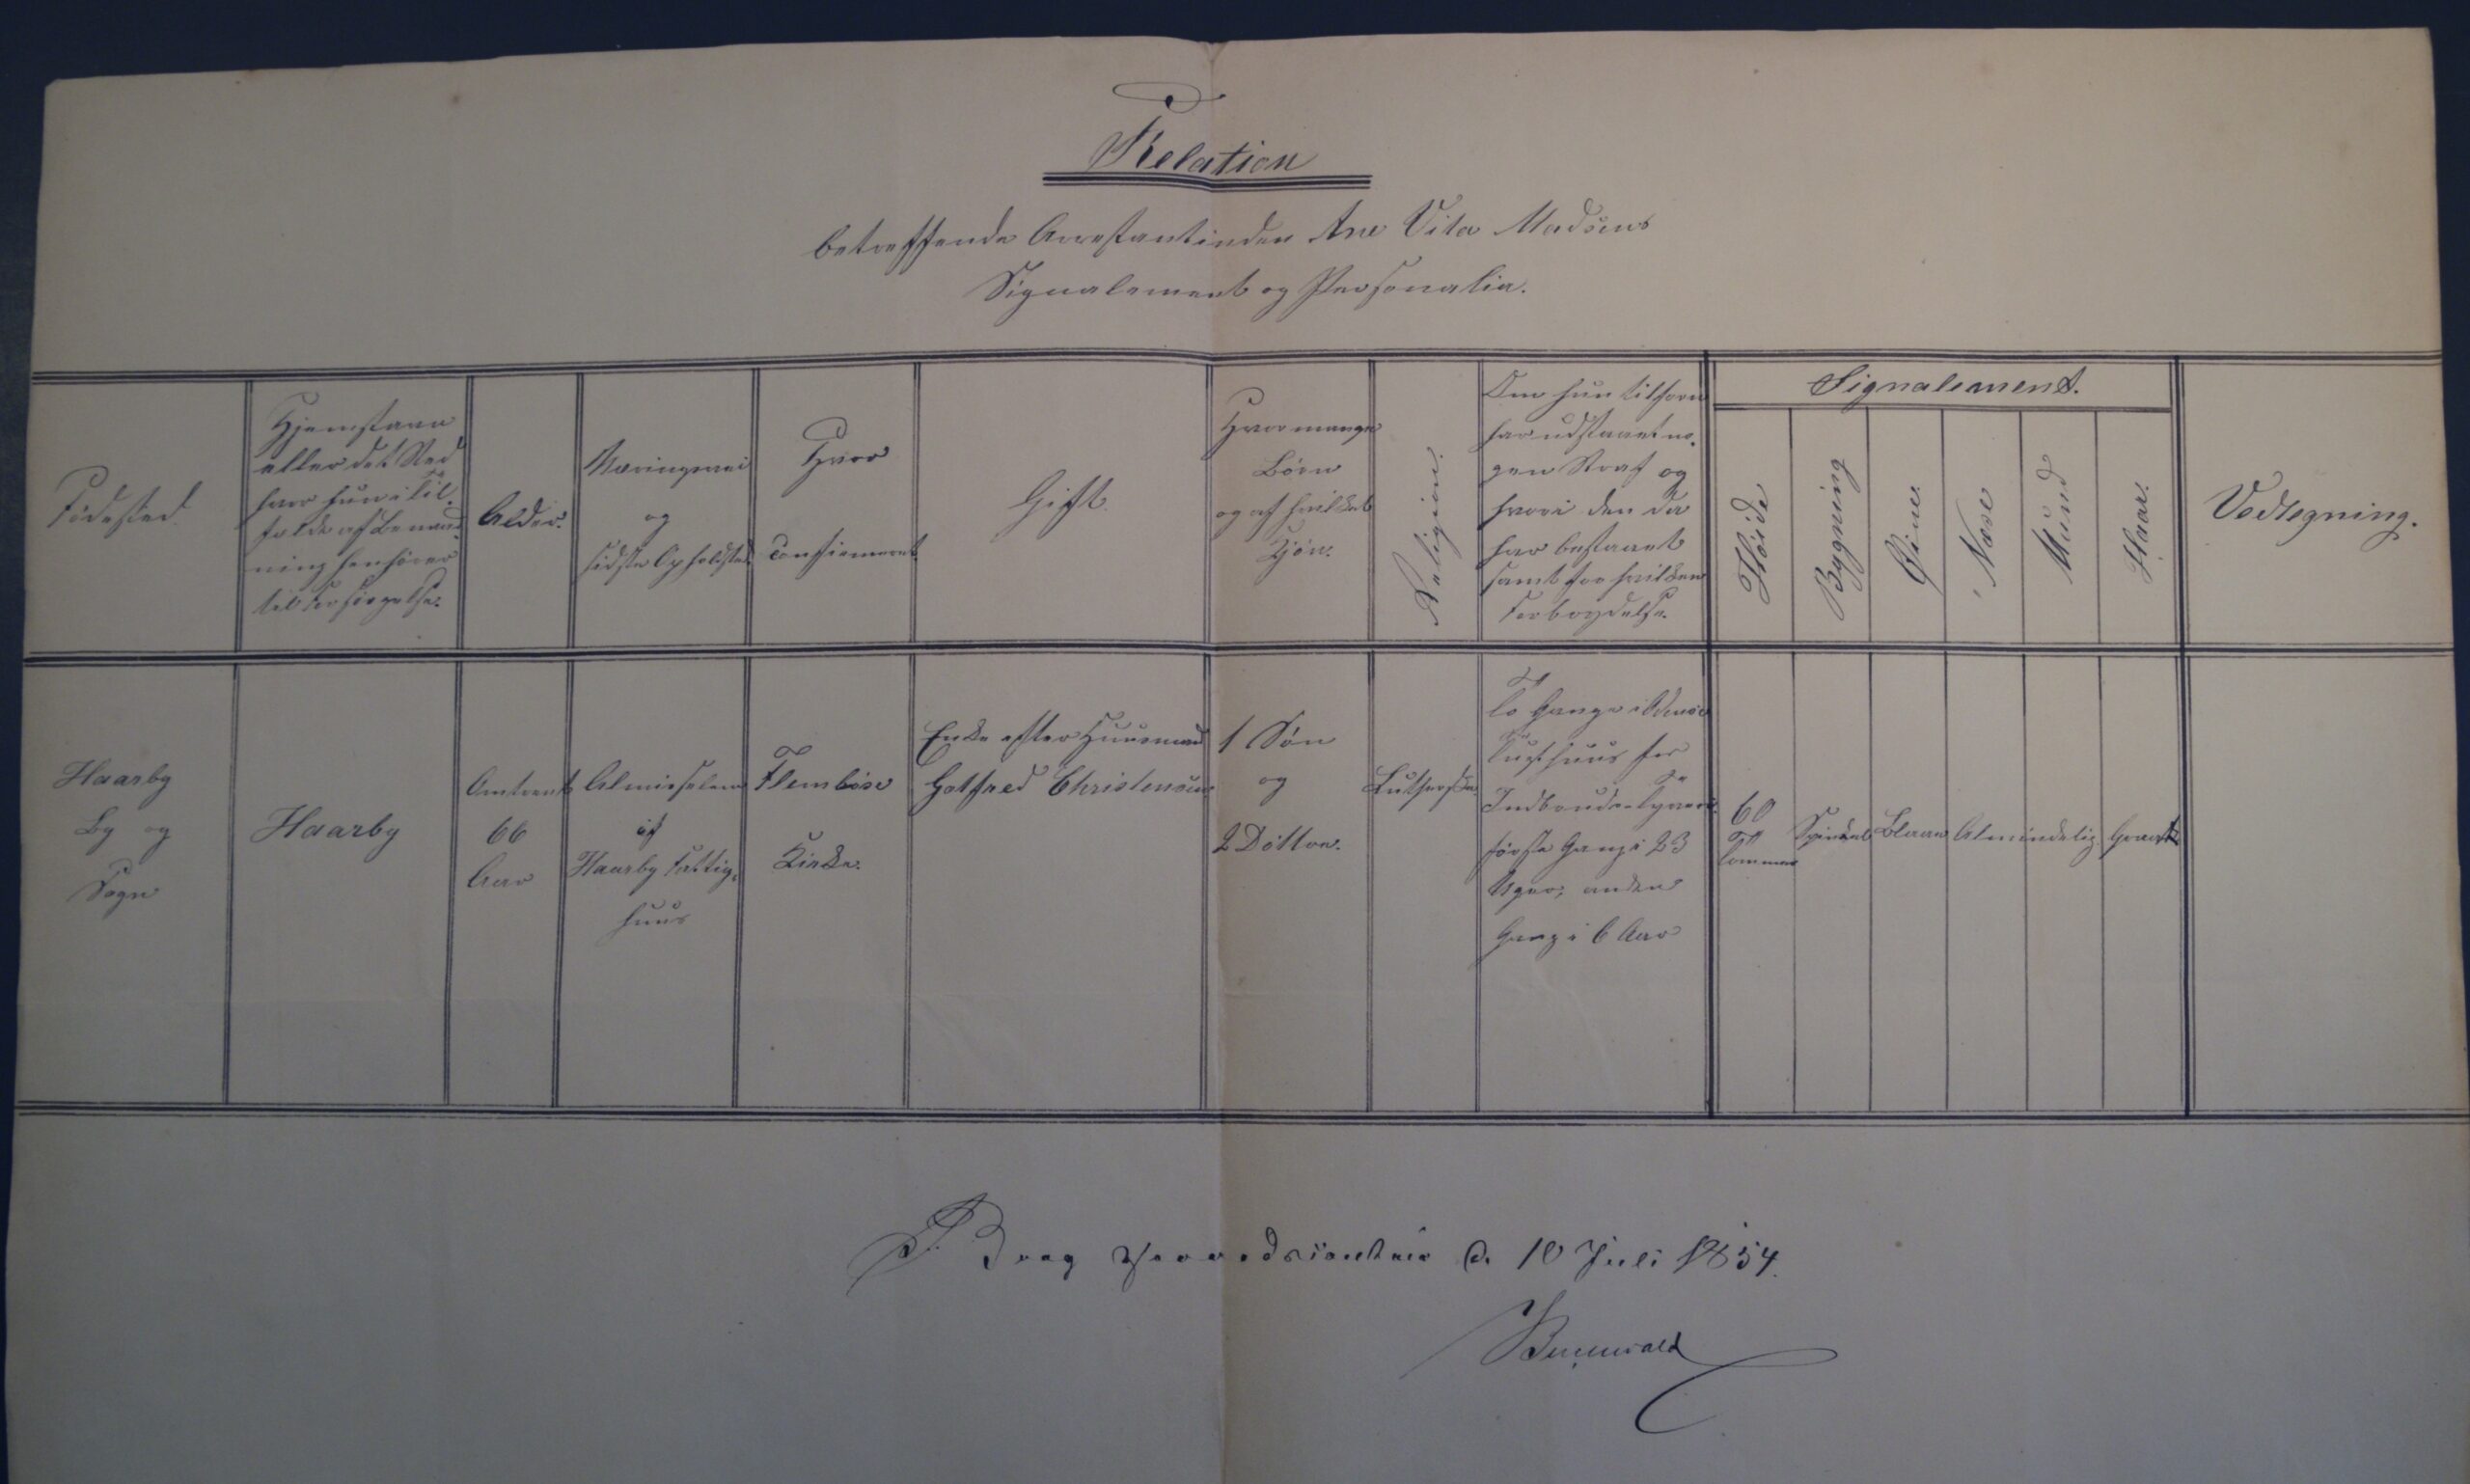 Relation
betreffende Arrestantinden Ane Vita Madsens
Signalement og Personalia.
Födested.
Hjemstavn
eller det Sted
hvor hun i Til-
fælde af Be
ning henhörer
til Forsörgelse.
Alder.
Næringsvei
og
sidste Opholdsted.
Hvor
Confirmeret.
Gift.
Hvormange
Börn
og af hvilket
Kjön.
Religion.
Om hun tilforn
har udstaaet no-
gen Straf og
hvori den da
har bestaaet
samt for hvilken
Forbrydelse.
Signalement.
Höide
Bygning
Öine.
Næse
Mund
Haar.
Vedtegning.
Haarby
By og
Sogn
Haarby
Omtrent
66
Aar
Almisselem
i
Haarby Fattig-
huus
Flemlöse
Kirke.
Enke efter Huusmand
Gotfred Christensen
1 Sön
og
2 Döttre.
Luthersk
To Gange i Odense
Tugthuus for
Indbruds-Tyveri
förste Gang i 23
Uger, anden
Gang i 6 Aar
60
Tommer
Spinkel
Blaae
Almindelig
Graat
Baag Herredscontoir d. 10 Juli 1854.